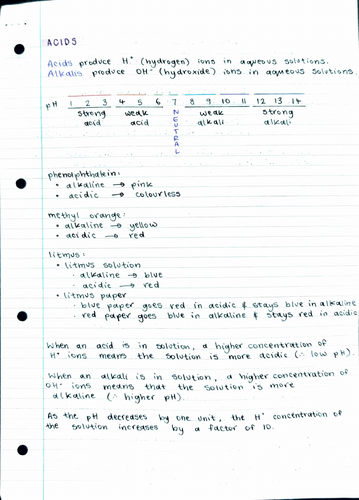 ACIDS
Acids produce H⁺ (hydrogen) ions in aqueous solutions.
Alkalis produce OH⁻ (hydroxide) ions in aqueous solutions.
pH 1 2 3 4 5 6 7 8 9 10 11 12 13 14
strong acid weak acid NEUTRAL weak alkali strong alkali
phenolphthalein:
• alkaline → pink
• acidic → colourless
methyl orange:
• alkaline → yellow
• acidic → red
litmus:
• litmus solution
- alkaline → blue
- acidic → red
• litmus paper
- blue paper goes red in acidic & stays blue in alkaline
- red paper goes blue in alkaline & stays red in acidic
When an acid is in solution, a higher concentration of
H⁺ ions means the solution is more acidic (∴ low pH).
When an alkali is in solution, a higher concentration of
OH⁻ ions means that the solution is more
alkaline (∴ higher pH).
As the pH decreases by one unit, the H⁺ concentration of
the solution increases by a factor of 10.